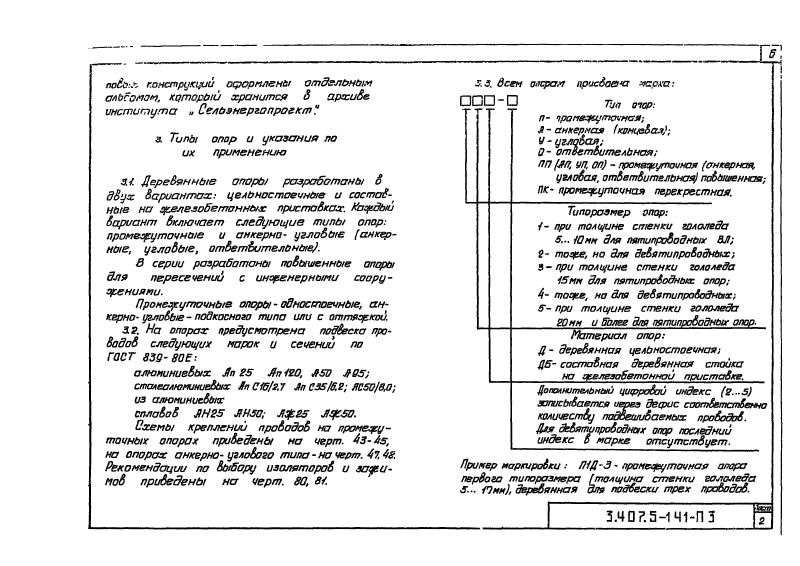 6
повых конструкций оформлены отдельным
альбомом, который хранится в архиве
института „Сельэнергопроект".
3. Типы опор и указания по
их применению
3.1. Деревянные опоры разработаны в
двух вариантах: цельностоечные и состав-
ные на железобетонных приставках. Каждый
вариант включает следующие типы опор:
промежуточные и анкерно-угловые (анкер-
ные, угловые, ответвительные).
В серии разработаны повышенные опоры
для пересечений с инженерными соору-
жениями.
Промежуточные опоры-одностоечные, ан-
керно-угловые-подкосного типа или с оттяжкой.
3.2. На опорах предусмотрена подвеска про-
водов следующих марок и сечений по
ГОСТ 839-80Е:
алюминиевых Ап 25 Ап120, А50 А95;
сталеалюминиевых Ап С16/2,7 Ап С35/6,2; АС50/8,0;
из алюминиевых
сплавов АН25 АН50; АЖ25 АЖ50.
Схемы креплений проводов на промежу-
точных опорах приведены на черт. 43-45,
на опорах анкерно-углового типа-на черт. 47,48.
Рекомендации по выбору изоляторов и зажи-
мов приведены на черт. 80, 81.
3.3. Всем опорам присвоена марка:
Тип опор:
П- промежуточная;
А- анкерная (концевая);
У- угловая;
О- ответвительная;
ПП (АП, УП, ОП) - промежуточная (анкерная,
угловая, ответвительная) повышенная;
ПК- промежуточная перекрестная.
Типоразмер опор:
1- при толщине стенки гололеда
5...10мм для пятипроводных ВЛ;
2- тоже, но для девятипроводных;
3- при толщине стенки гололеда
15мм для пятипроводных опор;
4- тоже, но для девятипроводных;
5- при толщине стенки гололеда
20мм и более для пятипроводных опор.
Материал опор:
Д - деревянная цельностоечная;
ДБ- составная деревянная стойка
на железобетонной приставке.
Дополнительный цифровой индекс (2...5)
записывается через дефис соответственно
количеству подвешиваемых проводов.
Для девятипроводных опор последний
индекс в марке отсутствует.
Пример маркировки: П1Д-3 - промежуточная опора
первого типоразмера (толщина стенки гололеда
5... мм), деревянная для подвески трех проводов.
3.407.5-141-П3
Лист
2